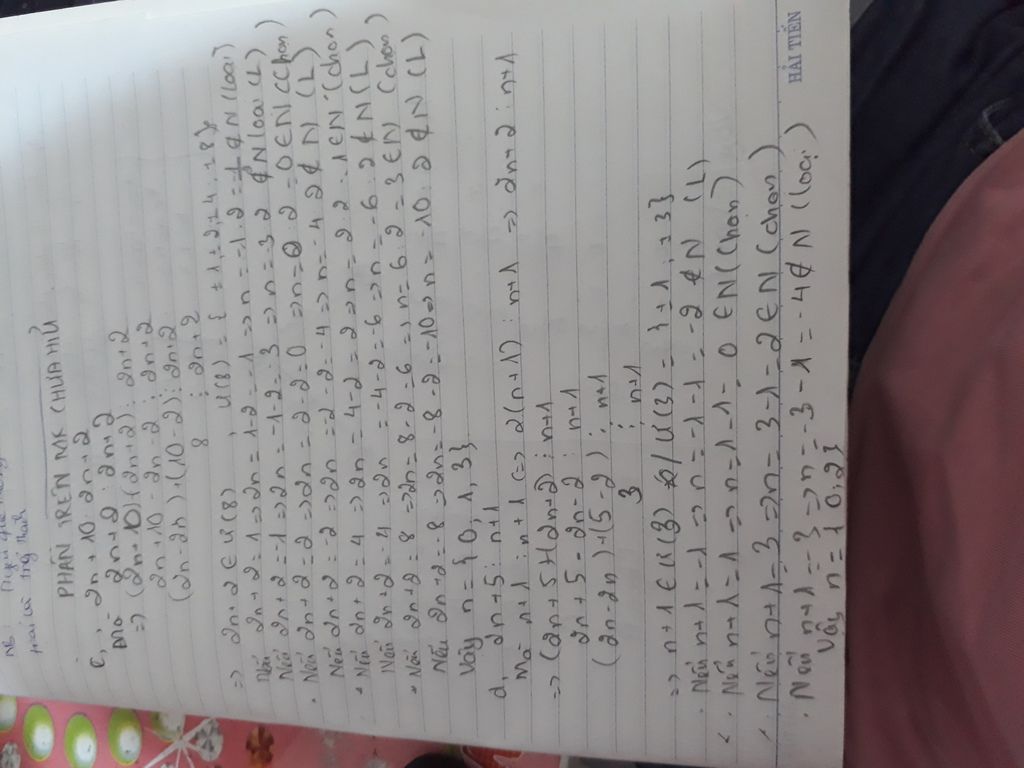 PHẦN TRÊN MK CHƯA HIỂU
c, 2n + 10 : 2n + 2
Mà 2n + 2 : 2n + 2
=> (2n + 10) - (2n + 2) : 2n + 2
2n + 10 - 2n - 2 : 2n + 2
(2n - 2n) + (10 - 2) : 2n + 2
8 : 2n + 2
=> 2n + 2 ∈ Ư(8) Ư(8) = { ±1; ±2; ±4; ±8}
Nếu 2n + 2 = 1 => 2n = 1 - 2 = -1 => n = -1 : 2 ∉ N (loại)
Nếu 2n + 2 = -1 => 2n = -1 - 2 = -3 => n = -3 : 2 ∉ N (loại) (L)
Nếu 2n + 2 = 2 => 2n = 2 - 2 = 0 => n = 0 : 2 = 0 ∈ N (chọn)
Nếu 2n + 2 = -2 => 2n = -2 - 2 = -4 => n = -4 : 2 ∉ N (L)
Nếu 2n + 2 = 4 => 2n = 4 - 2 = 2 => n = 2 : 2 = 1 ∈ N (chọn)
Nếu 2n + 2 = -4 => 2n = -4 - 2 = -6 => n = -6 : 2 ∉ N (L)
Nếu 2n + 2 = 8 => 2n = 8 - 2 = 6 => n = 6 : 2 = 3 ∈ N (chọn)
Nếu 2n + 2 = -8 => 2n = -8 - 2 = -10 => n = -10 : 2 ∉ N (L)
Vậy n = {0, 1, 3}
d, 2n + 5 : n + 1
Mà n + 1 : n + 1 <=> 2(n + 1) : n + 1 => 2n + 2 : n + 1
=> (2n + 5) - (2n - 2) : n + 1
2n + 5 - 2n - 2 : n + 1
(2n - 2n) + (5 - 2) : n + 1
3 : n + 1
=> n + 1 ∈ Ư(3) / Ư(3) = {±1; ±3}
Nếu n + 1 = -1 => n = -1 - 1 = -2 ∉ N (L)
Nếu n + 1 = 1 => n = 1 - 1 = 0 ∈ N (chọn)
Nếu n + 1 = 3 => n = 3 - 1 = 2 ∈ N (chọn)
Nếu n + 1 = -3 => n = -3 - 1 = -4 ∉ N (loại)
Vậy n = {0, 2}
HẢI TIẾN